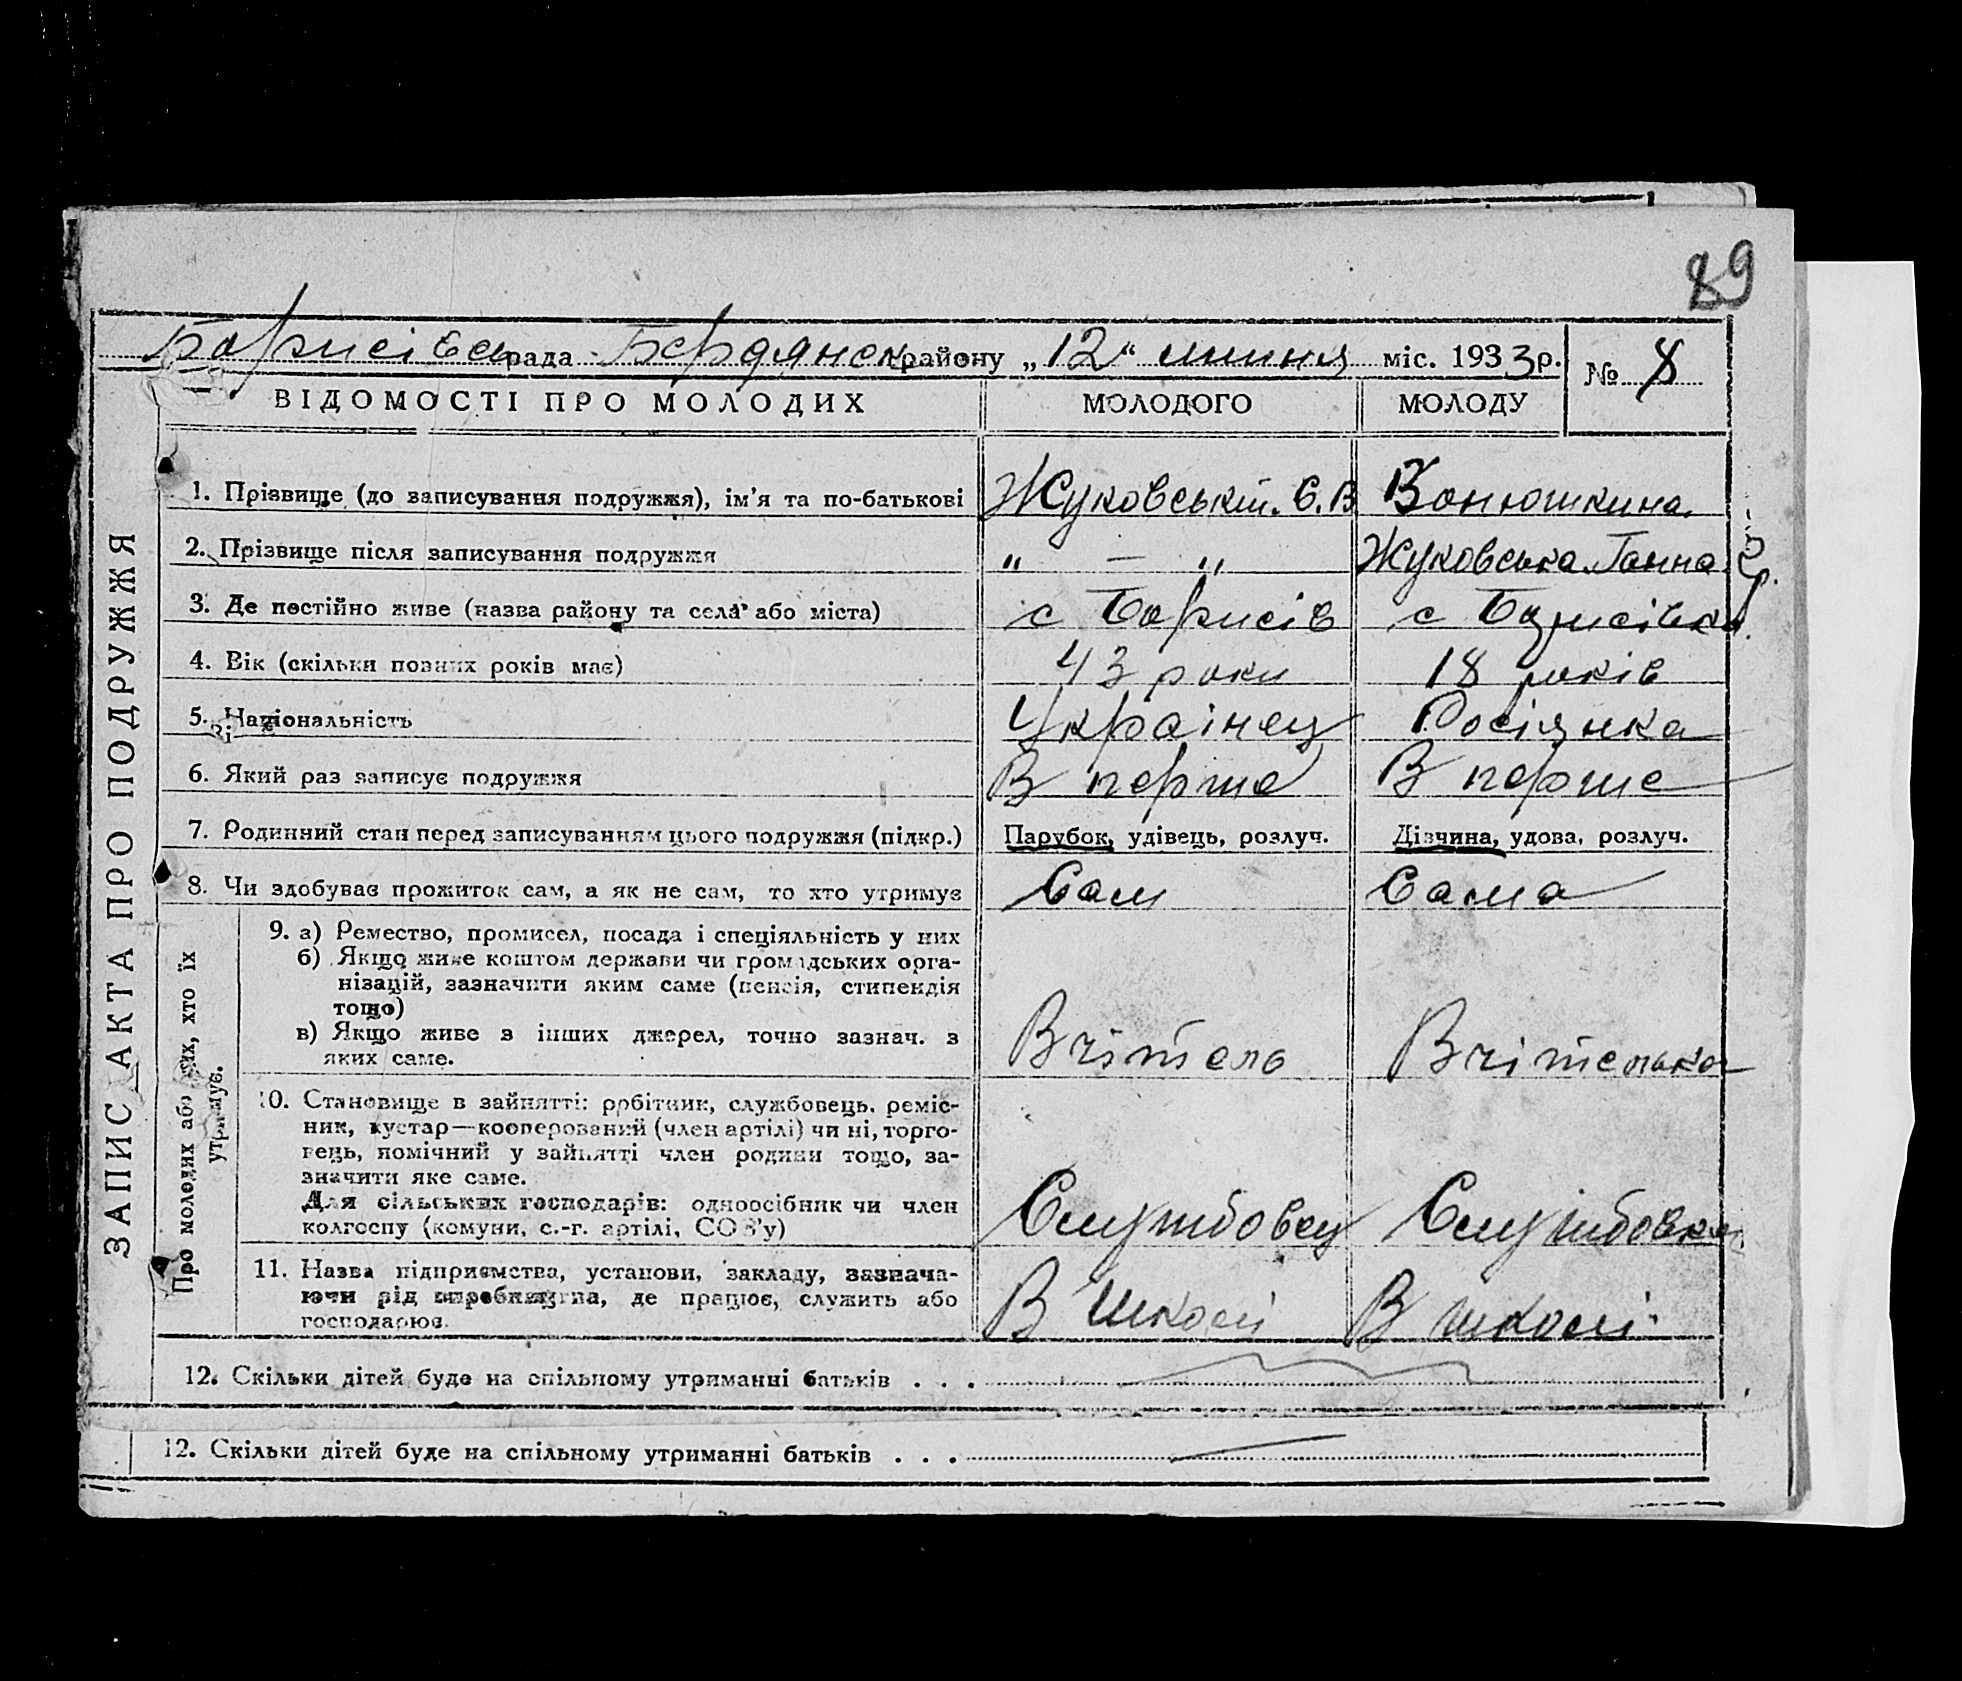 89
Борисівсь рада Бердянськ району „12“ липня міс. 1933 р. № 8
ВІДОМОСТІ ПРО МОЛОДИХ МОЛОДОГО МОЛОДУ
ЗАПИС АКТА ПРО ПОДРУЖЖЯ
1. Прізвище (до записування подружжя), ім'я та по-батькові Жуковський. Є. В Ванюшкина.
2. Прізвище після записування подружжя „ — „ Жуковська Ганна
3. Де постійно живе (назва району та села або міста) с Борисів с Борисівка.
4. Вік (скільки повних років має) 43 роки 18 років
5. Національність Українец Росіянка
6. Який раз записує подружжя В перше В перше
7. Родинний стан перед записуванням цього подружжя (підкр.) Парубок, удівець, розлуч. Дівчина, удова, розлуч.
8. Чи здобуває прожиток сам, а як не сам, то хто утримує Сам Сама
Про молодих або тих, хто їх утримує.
9. а) Ремество, промисел, посада і спеціяльність у них
б) Якщо живе коштом держави чи громадських орга-
нізацій, зазначити яким саме (пенсія, стипендія
тощо)
в) Якщо живе з інших джерел, точно зазнач. з
яких саме. Вчітель Вчітелька
10. Становище в зайнятті: робітник, службовець, реміс-
ник, кустар—кооперований (член артілі) чи ні, торго-
вець, помічний у зайнятті член родини тощо, за-
значити яке саме.
Для сільських господарів: одноосібник чи член
колгоспу (комуни, с.-г. артілі, СОЗ'у) Службовец Службовка.
11. Назва підприємства, установи, закладу, зазнача-
ючи рід виробництва, де працює, служить або
господарює. В школі В школі.
12. Скільки дітей буде на спільному утриманні батьків . . .
12. Скільки дітей буде на спільному утриманні батьків . . .